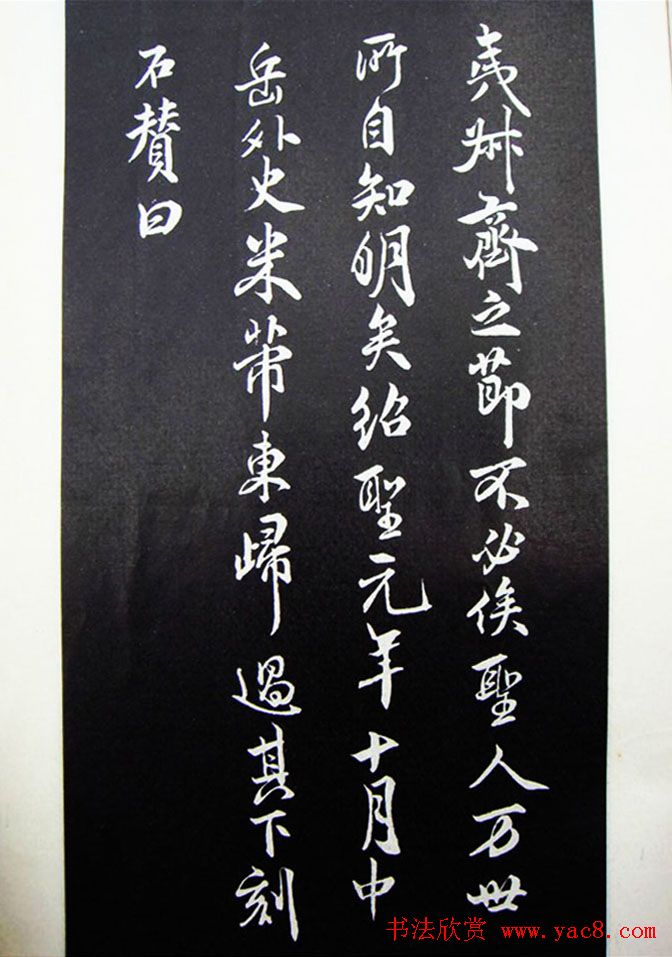 夷叔齊之節不必俟聖人万世
所自知明矣紹聖元年十月中
岳外史米芾東歸過其下刻
石賛曰
书法欣赏 www.yac8.com